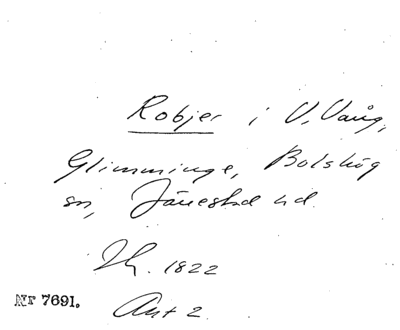 Robjer i V. Vång,
Glimminge, Bolshög
sn, Järrestad hd.
Th. 1822
Ant 2
Nr 7691.